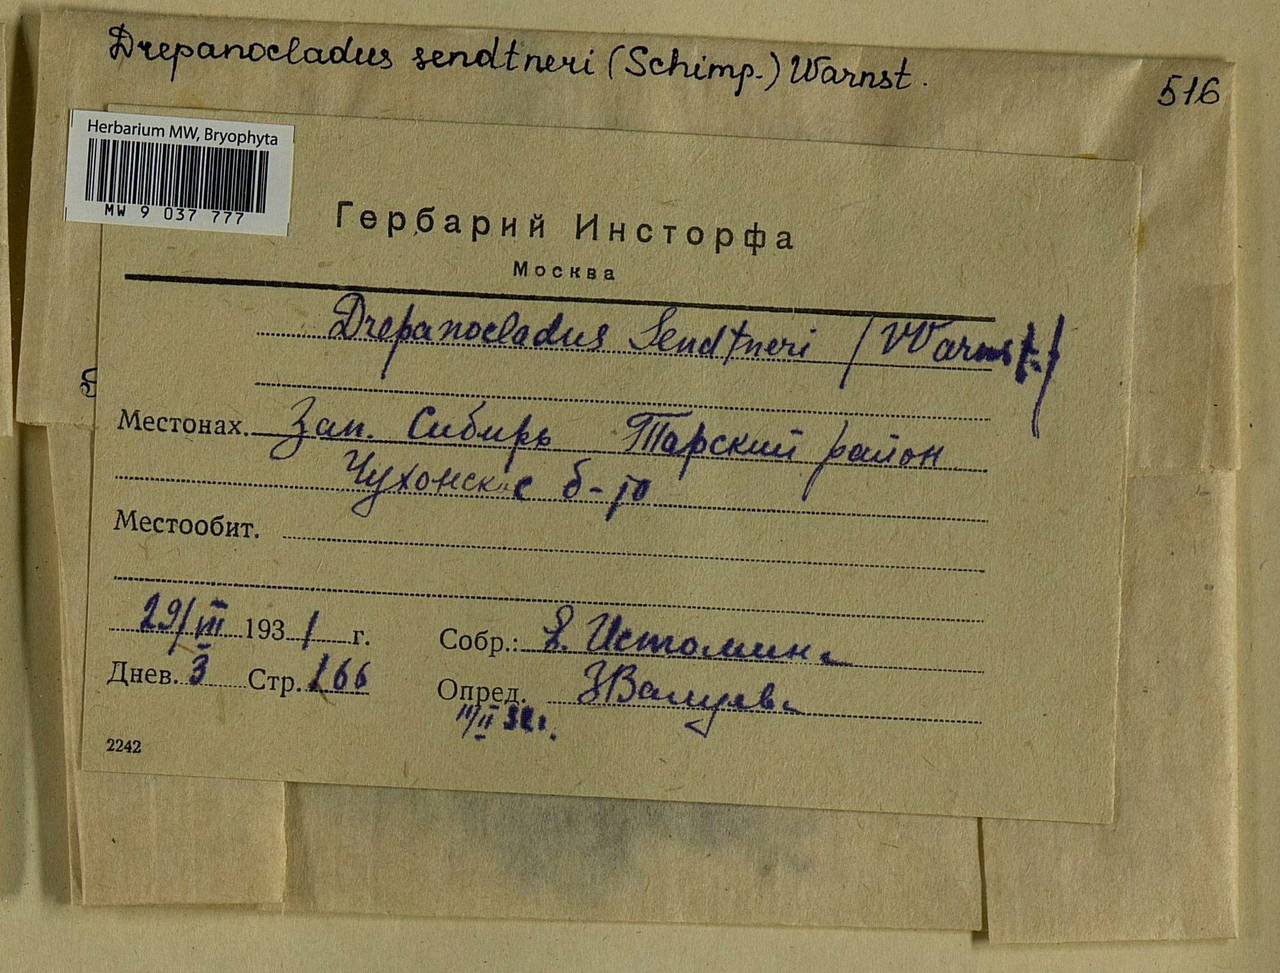 Drepanocladus sendtneri (Schimp.) Warnst.
516
Herbarium MW, Bryophyta
MW 9 037 777
Гербарий Инсторфа
Москва
Drepanocladus Sendtneri (Warnst.)
Местонах. Зап. Сибирь Тарский район
Чухонское б-то
Местообит.
29/VII 1931 г. Собр.: Е. Истомина
Днев. 3 Стр. 166 Опред. Валуева
2242